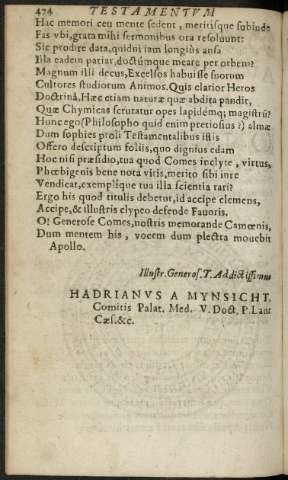 474 TESTAMENTVM
Hac memori ceu mente sedent, meritisque subinde
Fas vbi, grata mihi sermonibus ora resoluunt:
Sic prodire data, quidni iam longiùs ansa
Illa eadem patiar, doctúmque meare per orbem?
Magnum illi decus, Excelsos habuisse suorum
Cultores studiorum Animos. Quis clarior Heros
Doctrinâ, Hæc etiam naturæ quæ abdita pandit,
Quæ Chymicas scrutatur opes lapidémq; magistrû?
Hunc ego (Philosopho quid enim pretiosius?) almæ
Dum sophies proli Testamentalibus istis
Offero descriptum foliis, quo dignius edam
Hoc nisi præsidio, tua quod Comes inclyte, virtus,
Phœbigenis bene nota vitis, merito sibi iure
Vendicat, exemplíque tua illa scientia rari?
Ergo his quod titulis debetur, id accipe clemens,
Accipe, & illustris clypeo defende Favoris.
O! Generose Comes, nostris memorande Camœnis,
Dum mentem his, vocem dum plectra mouebit
Apollo.
Illustr. Generos. T. Addictissimus
HADRIANVS A MYNSICHT.
Comitis Palat. Med. V. Doct. P. Laur
Cæs. &c.